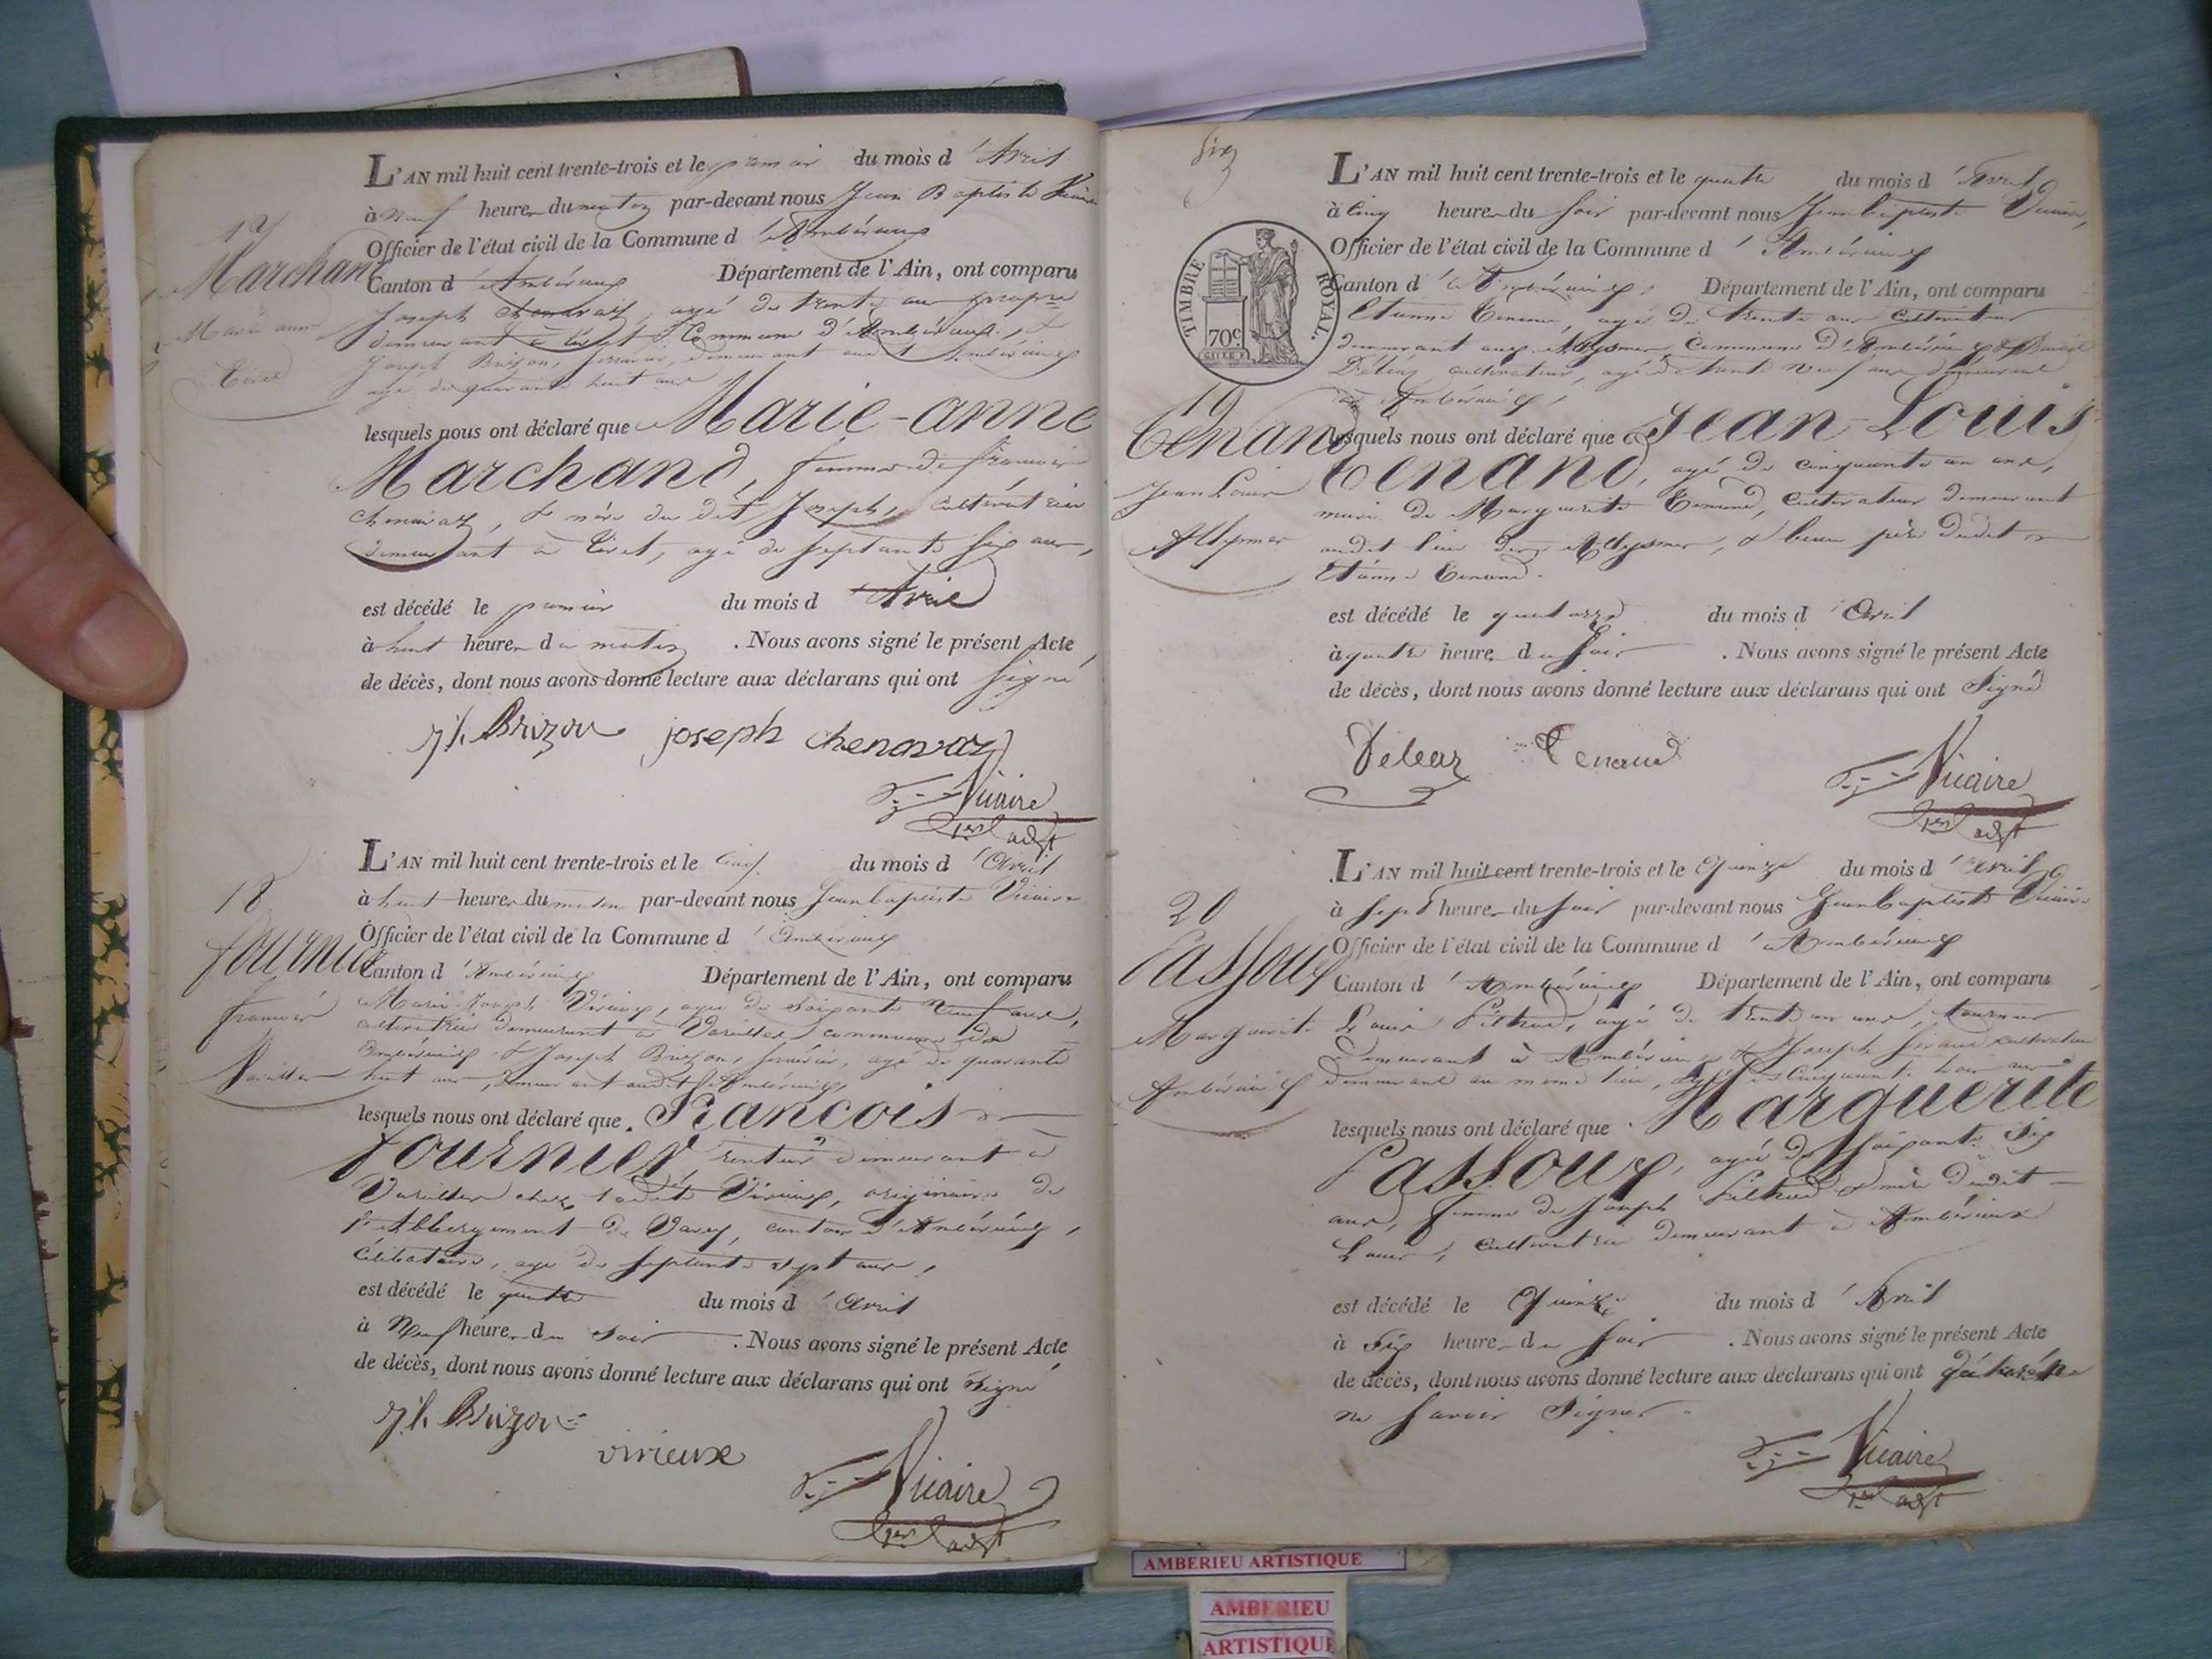 17
Marchand
Marie anne
Tiret
L'AN mil huit cent trente-trois et le premier du mois d'Avril
à neuf heures du matin par-devant nous Jean Baptiste Vicaire
Officier de l'état civil de la Commune d'Ambérieux
Canton d'Ambérieux Département de l'Ain, ont comparu
Joseph Chenavaz, agé de trente
demeurant à Tiret Commune d'Ambérieux, &
Joseph Brizon, demeurant audit Ambérieux
agé de quarante huit ans
lesquels nous ont déclaré que Marie-anne
Marchand, femme de francois
Chenavaz, & mère du dit Joseph, cultivatrice
demeurant à Tiret, agé de septante six ans,
est décédé le premier du mois d'Avril
à huit heures du matin . Nous avons signé le présent Acte
de décès, dont nous avons donné lecture aux déclarans qui ont signé
Jh Brizon joseph chenavaz
Vicaire
1er adjt
18
fournier
francois
Vareilles
L'AN mil huit cent trente-trois et le cinq du mois d'Avril
à huit heures du matin par-devant nous Jean baptiste Vicaire
Officier de l'état civil de la Commune d'Ambérieux
Canton d'Ambérieux Département de l'Ain, ont comparu
Marie Joseph Virieux, agé de soixante neuf ans,
demeurant à Vareilles, commune de
Ambérieux & Joseph Brizon, agé de quarante
huit ans, demeurant audit Ambérieux,
lesquels nous ont déclaré que Francois
fournier, rentier demeurant à
Vareilles chez ladite Virieux, originaire de
l'Abbergement de Varey, canton d'Ambérieux,
célibataire, agé de septante sept ans,
est décédé le quatre du mois d'Avril
à neuf heures du soir . Nous avons signé le présent Acte
de décès, dont nous avons donné lecture aux déclarans qui ont signé
Jh Brizon
virieux
Vicaire
1er adjt
six
TIMBRE ROYAL.
70c
19
Tenand
Jean Louis
Allymes
L'AN mil huit cent trente-trois et le quatre du mois d'Avril
à cinq heures du soir par-devant nous Jean baptiste Vicaire,
Officier de l'état civil de la Commune d'Ambérieux
Canton d'Ambérieux, Département de l'Ain, ont comparu
Etienne Tenand, agé de trente ans cultivateur
demeurant aux Allymes Commune d'Ambérieux &
cultivateur, agé de trente neuf ans demeurant
à Ambérieux,
lesquels nous ont déclaré que Jean-Louis
Tenand, agé de cinquante un ans,
mari de Marguerite Tenand, cultivateur demeurant
audit lieu des Allymes, & beau père dudit
Etienne Tenand.
est décédé le quatorze du mois d'Avril
à quatre heures du soir . Nous avons signé le présent Acte
de décès, dont nous avons donné lecture aux déclarans qui ont signé
Tenand
Vicaire
1er adjt
20
Passoux
Marguerite
Ambérieux
L'AN mil huit cent trente-trois et le quinze du mois d'avril
à sept heures du soir par-devant nous Jean baptiste Vicaire
Officier de l'état civil de la Commune d'Ambérieux
Canton d'Ambérieux Département de l'Ain, ont comparu
Louis agé de trente un ans,
demeurant à Ambérieux & Joseph cultivateur
demeurant au même lieu, agé de cinquante trois ans
lesquels nous ont déclaré que Marguerite
Passoux, agée de soixante six
ans, femme de Joseph & mère dudit
Louis, cultivatrice demeurant à Ambérieux
est décédé le quinze du mois d'Avril
à six heures du soir . Nous avons signé le présent Acte
de décès, dont nous avons donné lecture aux déclarans qui ont déclaré
ne savoir signer
Vicaire
1er adjt
AMBERIEU ARTISTIQUE
AMBERIEU
ARTISTIQUE